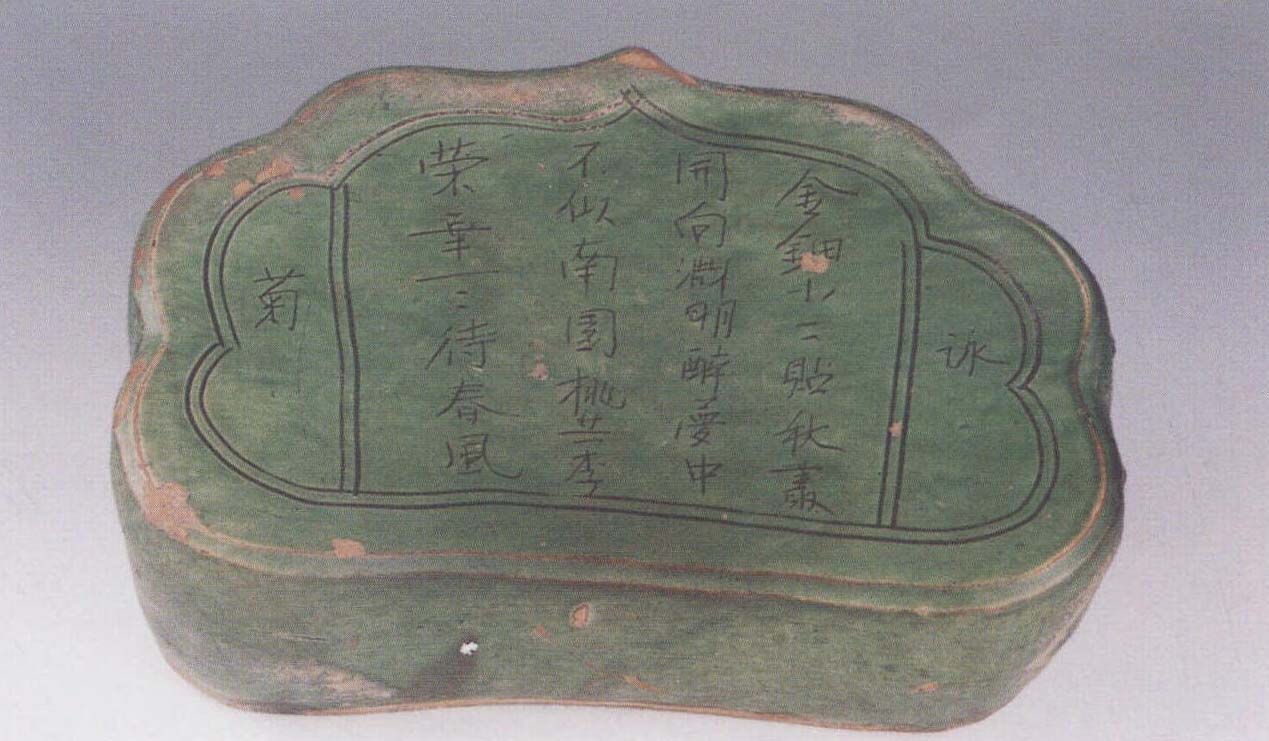 詠
金鈿小〻貼秋叢
開向淵明醉夢中
不似南園桃共李
荣華一〻待春風
菊